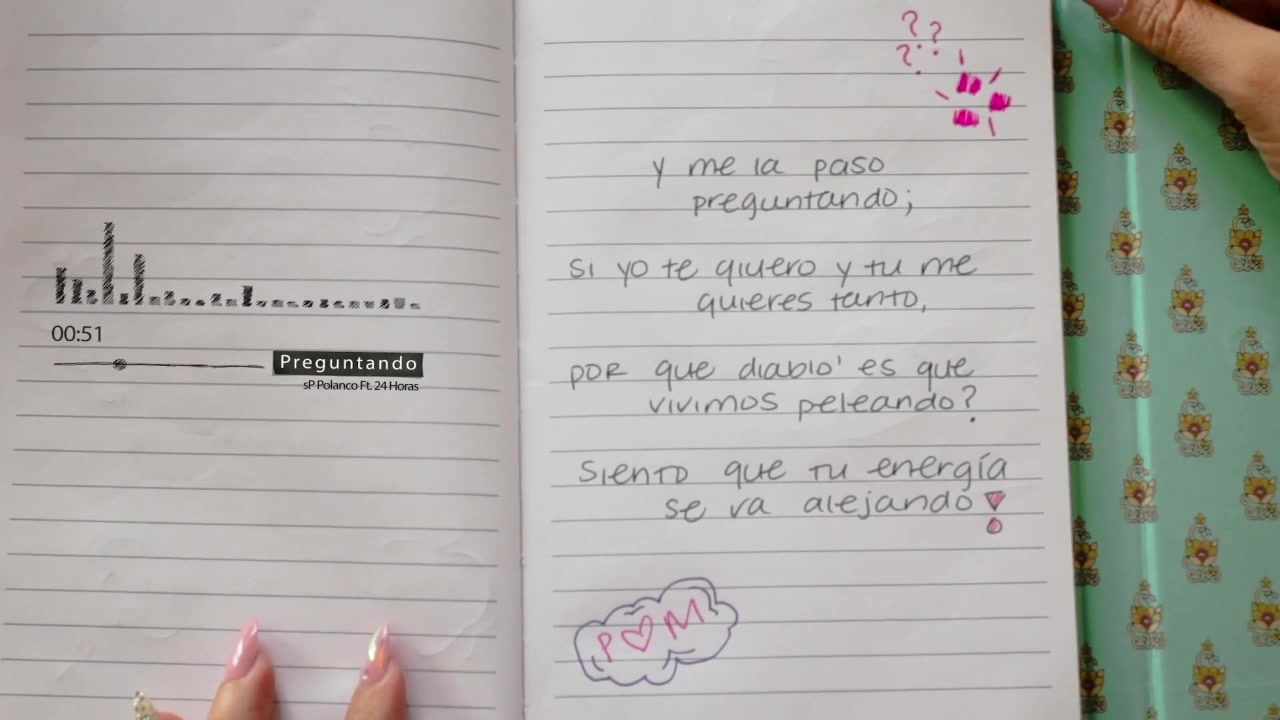 00:51
Preguntando
sP Polanco Ft. 24 Horas
? ?
?
y me la paso
preguntando;
si yo te quiero y tu me
quieres tanto,
por que diablo' es que
vivimos peleando?
siento que tu energía
se va alejando!
P♡M